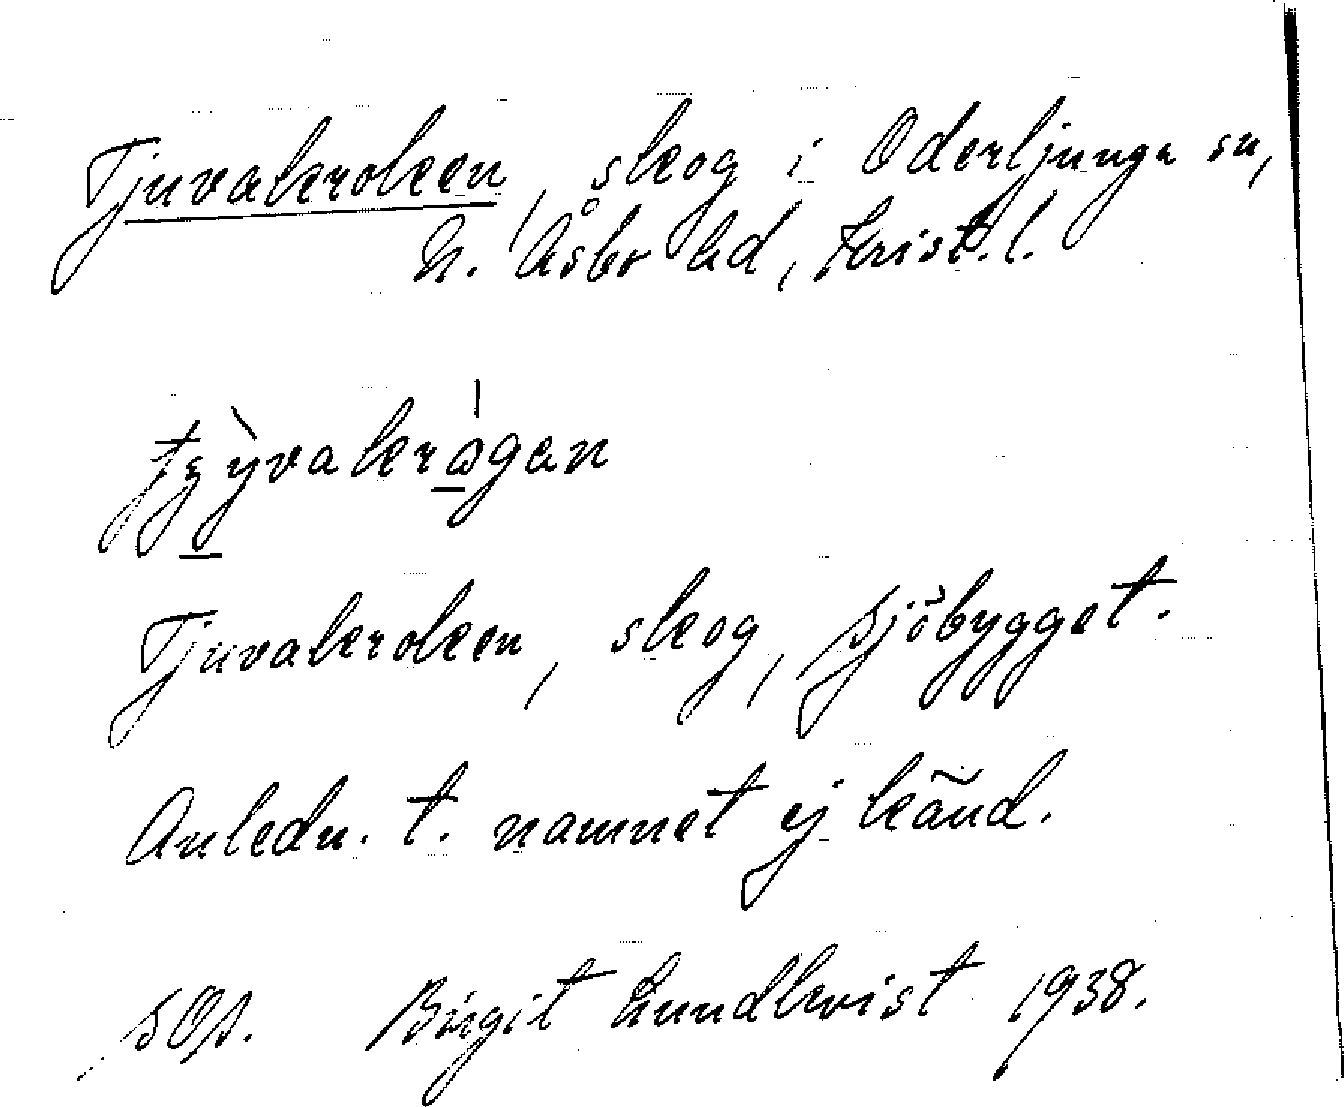 Tjuvakroken, skog i Oderljunga sn,
N. Åsbo hd, Krist. l.
Tjuvakroken, skog, sjöbygget.
Anledn. t. namnet ej känd.
Birgit Lundkvist 1938.